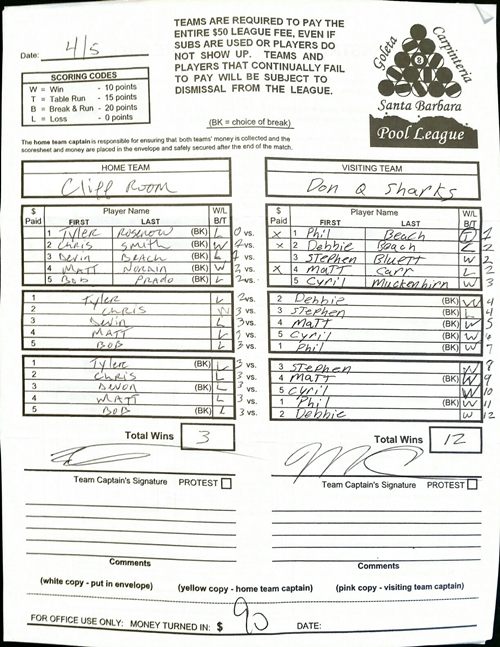 Date: 4/5
TEAMS ARE REQUIRED TO PAY THE
ENTIRE $50 LEAGUE FEE, EVEN IF
SUBS ARE USED OR PLAYERS DO
NOT SHOW UP. TEAMS AND
PLAYERS THAT CONTINUALLY FAIL
TO PAY WILL BE SUBJECT TO
DISMISSAL FROM THE LEAGUE.
(BK = choice of break)
SCORING CODES
W = Win - 10 points
T = Table Run - 15 points
B = Break & Run - 20 points
L = Loss - 0 points
Goleta
Carpinteria
8
Santa Barbara
Pool League
The home team captain is responsible for ensuring that both teams' money is collected and the
scoresheet and money are placed in the envelope and safely secured after the end of the match.
HOME TEAM
Cliff Room
$ Paid Player Name FIRST LAST W/L B/T
1 Tyler (BK) L 0 vs.
2 Chris Smith (BK) W 2 vs.
3 Devin Beach (BK) L vs.
4 Matt (BK) W 2 vs.
5 Bob Prado (BK) L 2 vs.
1 Tyler L 2 vs.
2 Chris W 3 vs.
3 Devin L 3 vs.
4 Matt L vs.
5 Bob L 3 vs.
1 Tyler (BK) L 3 vs.
2 Chris L 3 vs.
3 Devon (BK) L 3 vs.
4 Matt L 3 vs.
5 Bob (BK) L 3 vs.
Total Wins 3
VISITING TEAM
Don Q Sharks
$ Paid Player Name FIRST LAST W/L B/T
x 1 Phil Beach T 1
x 2 Debbie Beach L
3 Stephen Bluett W 2
x 4 Matt Carr L 2
5 Cyril Muckenhirn W 3
2 Debbie (BK) W 4
3 Stephen (BK) L 4
4 Matt (BK) W 5
5 Cyril (BK) W 6
1 Phil (BK) W 7
3 Stephen W 8
4 Matt (BK) W 9
5 Cyril W 10
1 Phil (BK) W 11
2 Debbie W 12
Total Wins 12
Team Captain's Signature PROTEST
Team Captain's Signature PROTEST
Comments
Comments
(white copy - put in envelope) (yellow copy - home team captain) (pink copy - visiting team captain)
FOR OFFICE USE ONLY: MONEY TURNED IN: $ 90 DATE: